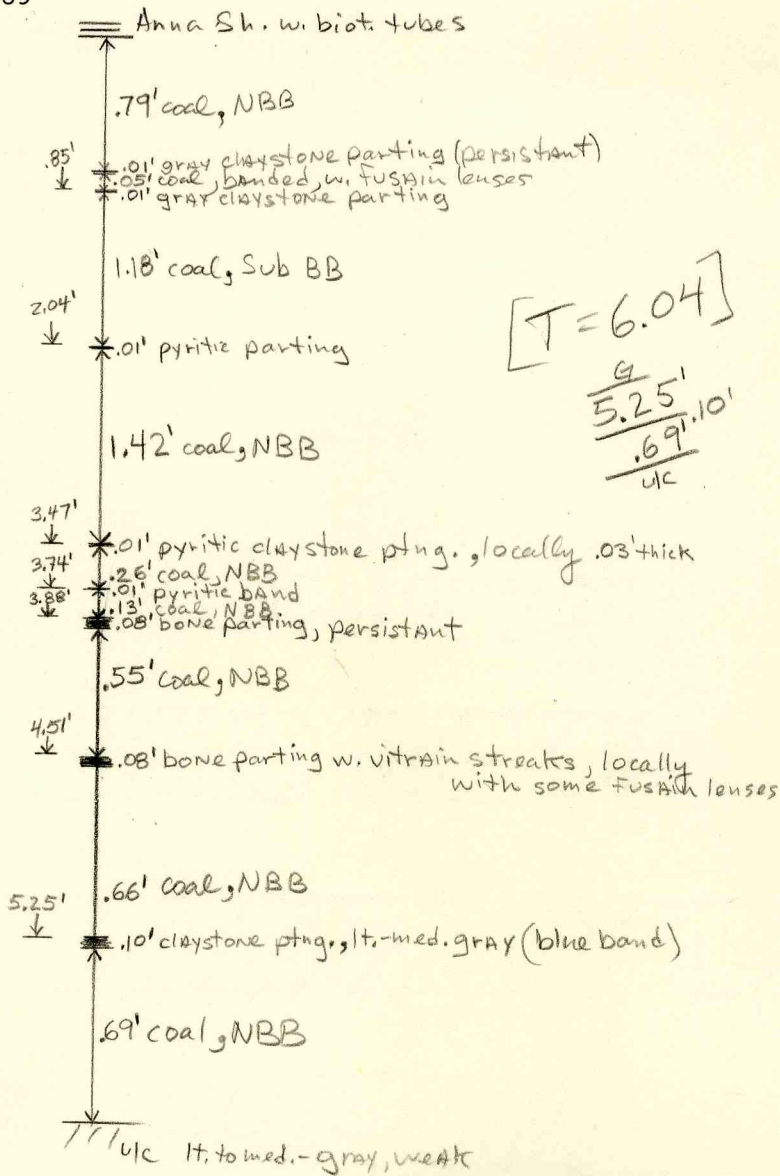 Anna Sh. w. biot. tubes
.79' coal, NBB
.85'
.01' gray claystone parting (persistant)
.05' coal, banded, w. fusain lenses
.01' gray claystone parting
1.18' coal, Sub BB
2.04'
.01' pyritic parting
[T = 6.04]
G
5.25'
.10'
.69'
u/c
1.42' coal, NBB
3.47'
.01' pyritic claystone ptng., locally .03' thick
3.74'
.26' coal, NBB
.01' pyritic band
3.88'
.13' coal, NBB
.08' bone parting, persistant
.55' coal, NBB
4.51'
.08' bone parting w. vitrain streaks, locally
with some fusain lenses
.66' coal, NBB
5.25'
.10' claystone ptng., lt.-med. gray (blue band)
.69' coal, NBB
u/c lt. to med.-gray, weak